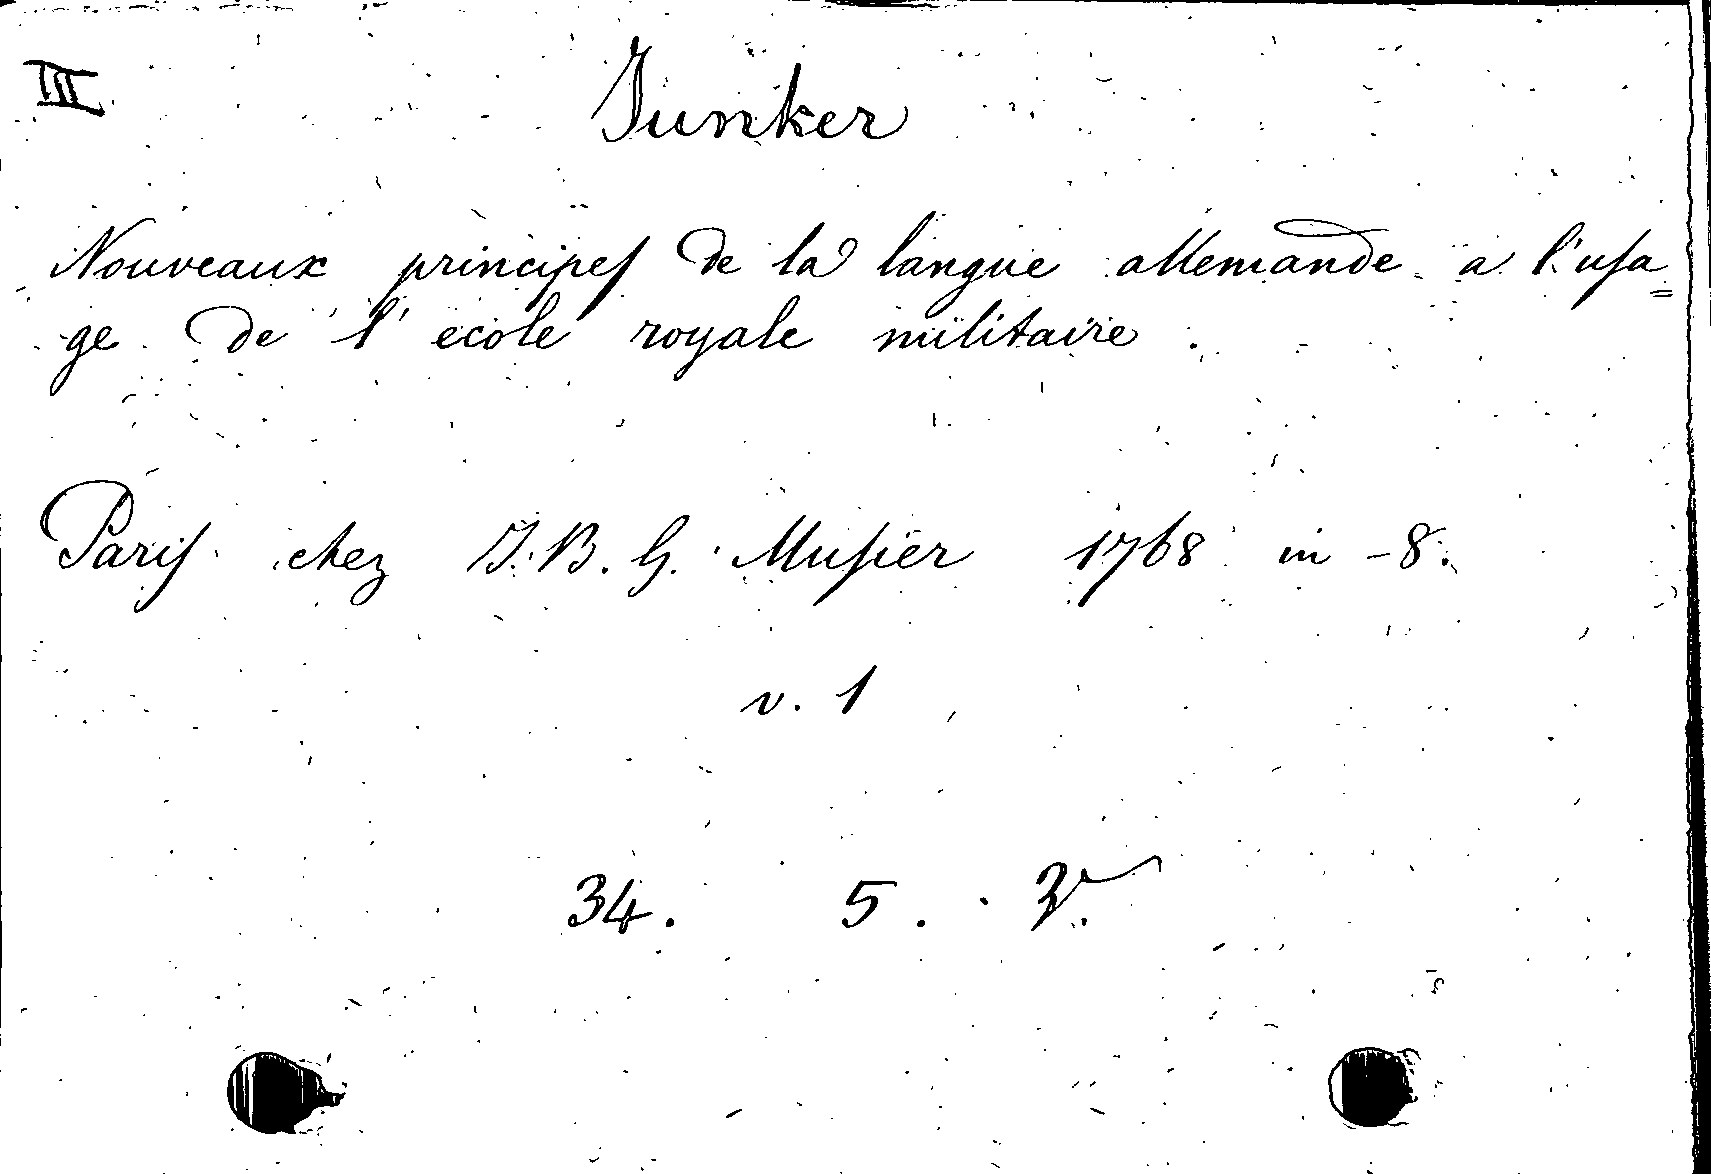 III
Junker
Nouveaux principeſ de la langue allemande a l'uſa=
ge de l'ecole royale militaire.
Pariſ chez J. B. G. Muſier 1768 in -8.
v. 1
34. 5.